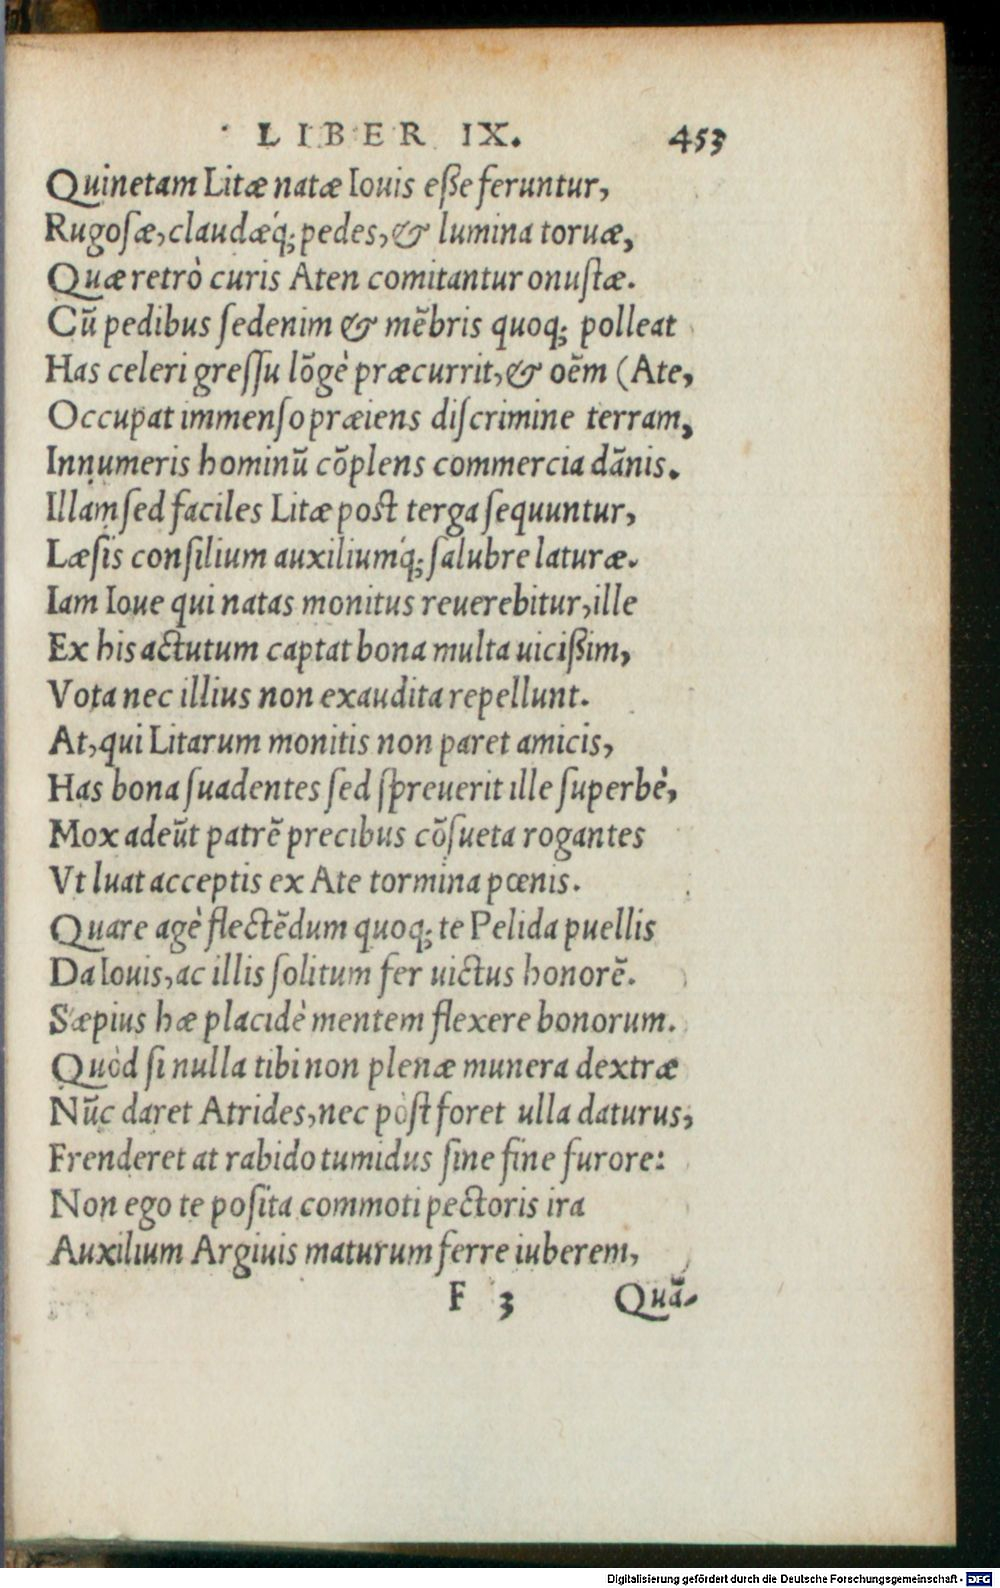 LIBER IX. 453
Quinetam Litæ natæ Iouis eſße feruntur,
Rugoſæ, claudæq́; pedes, & lumina toruæ,
Quæ retrò curis Aten comitantur onuſtæ.
Cũ pedibus ſedenim & mẽbris quoq; polleat
Has celeri greſſu lõgè præcurrit, & oẽm (Ate,
Occupat immenſo præiens diſcrimine terram,
Innumeris hominũ cõplens commercia dãnis.
Illam ſed faciles Litæ poſt terga ſequuntur,
Læſis conſilium auxiliumq́; ſalubre laturæ.
Iam Ioue qui natas monitus reuerebitur, ille
Ex his actutum captat bona multa uicißim,
Vota nec illius non exaudita repellunt.
At, qui Litarum monitis non paret amicis,
Has bona ſuadentes ſed ſpreuerit ille ſuperbè,
Mox adeũt patrẽ precibus cõſueta rogantes
Vt luat acceptis ex Ate tormina pœnis.
Quare agè flectẽdum quoq; te Pelida puellis
Da Iouis, ac illis ſolitum fer uictus honorẽ.
Sæpius hæ placidè mentem flexere bonorum.
Quòd ſi nulla tibi non plenæ munera dextræ
Nũc daret Atrides, nec pòſt foret ulla daturus,
Frenderet at rabido tumidus ſine fine furore:
Non ego te poſita commoti pectoris ira
Auxilium Argiuis maturum ferre iuberem,
F 3 Quã-
Digitalisierung gefördert durch die Deutsche Forschungsgemeinschaft - DFG